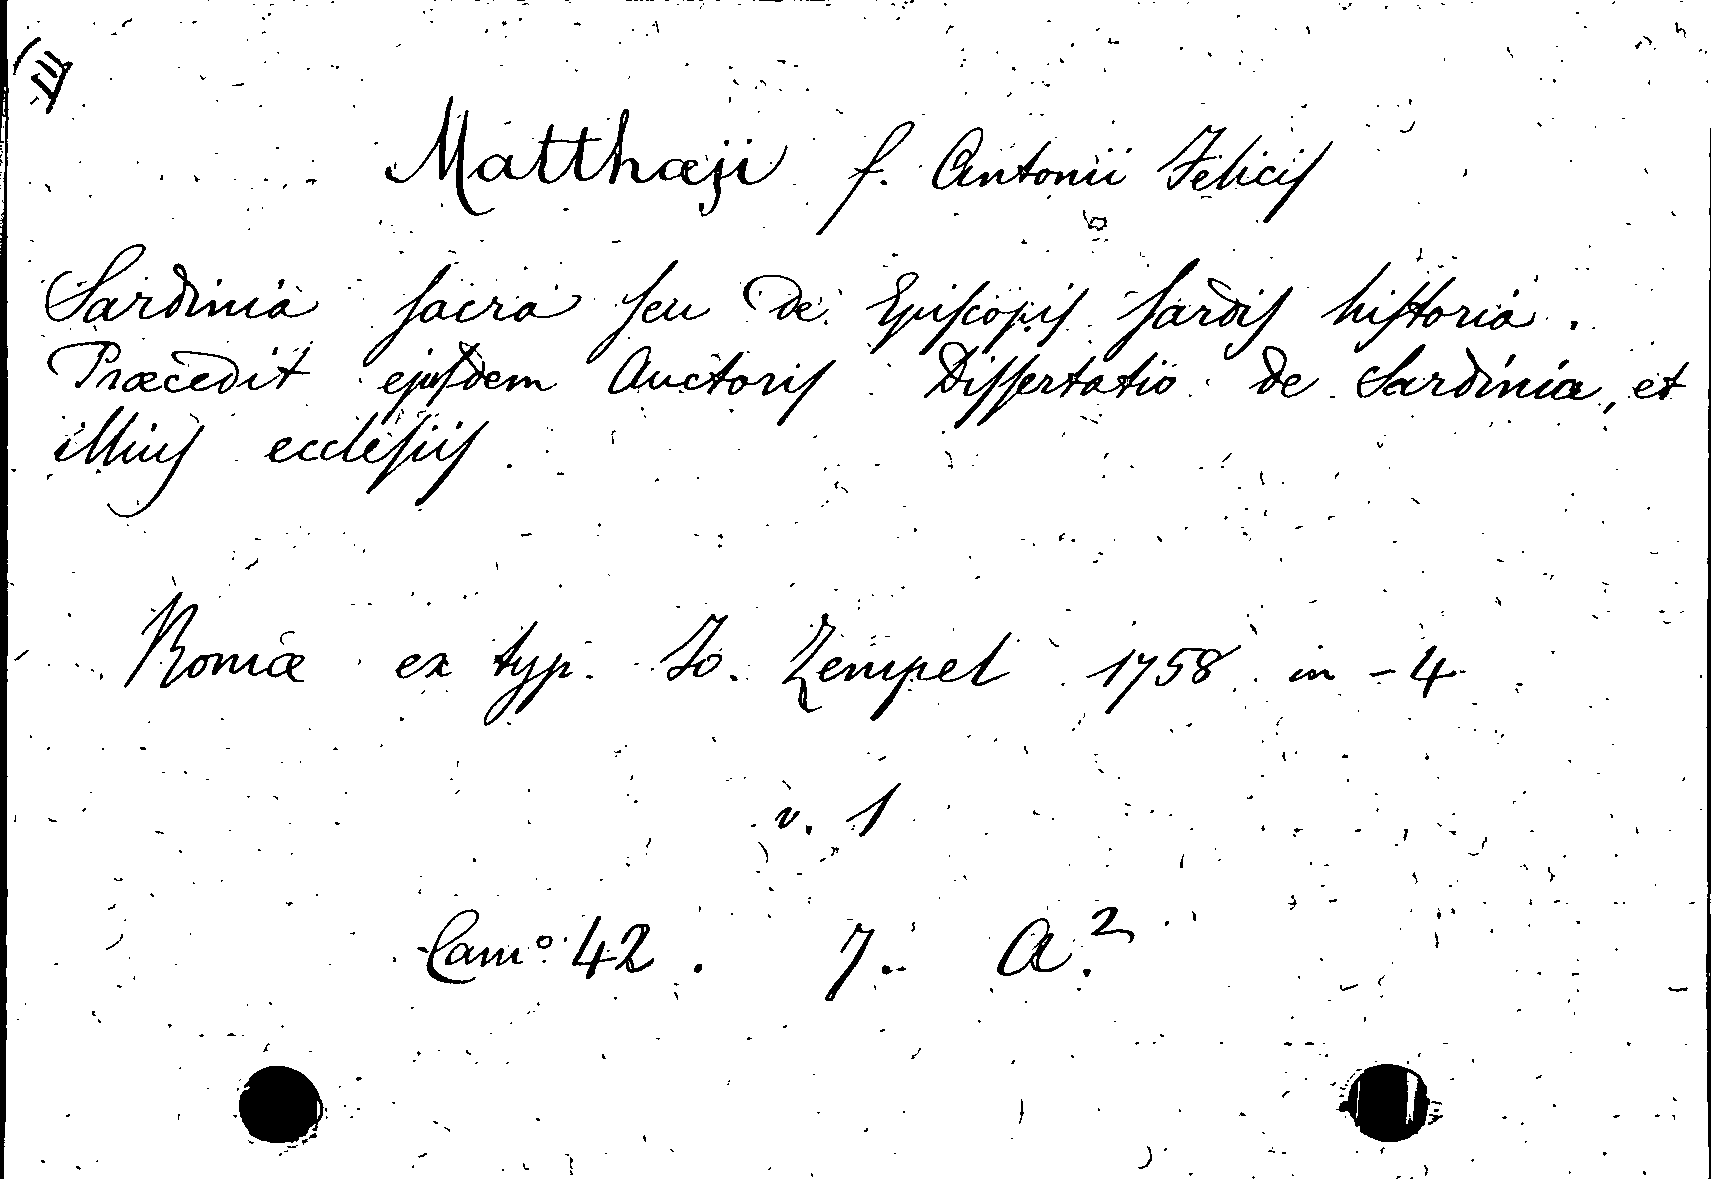 Matthæji f. Antonii Felicis
Sardinia sacra seu de Episcopis sardis historia.
Præcedit ejusdem Auctoris Dissertatio de Sardinia, et
illius ecclesiis.
Romæ ex typ. Jo. Zempel 1758 in-4
v. 1
Camº 42. 7. A.²